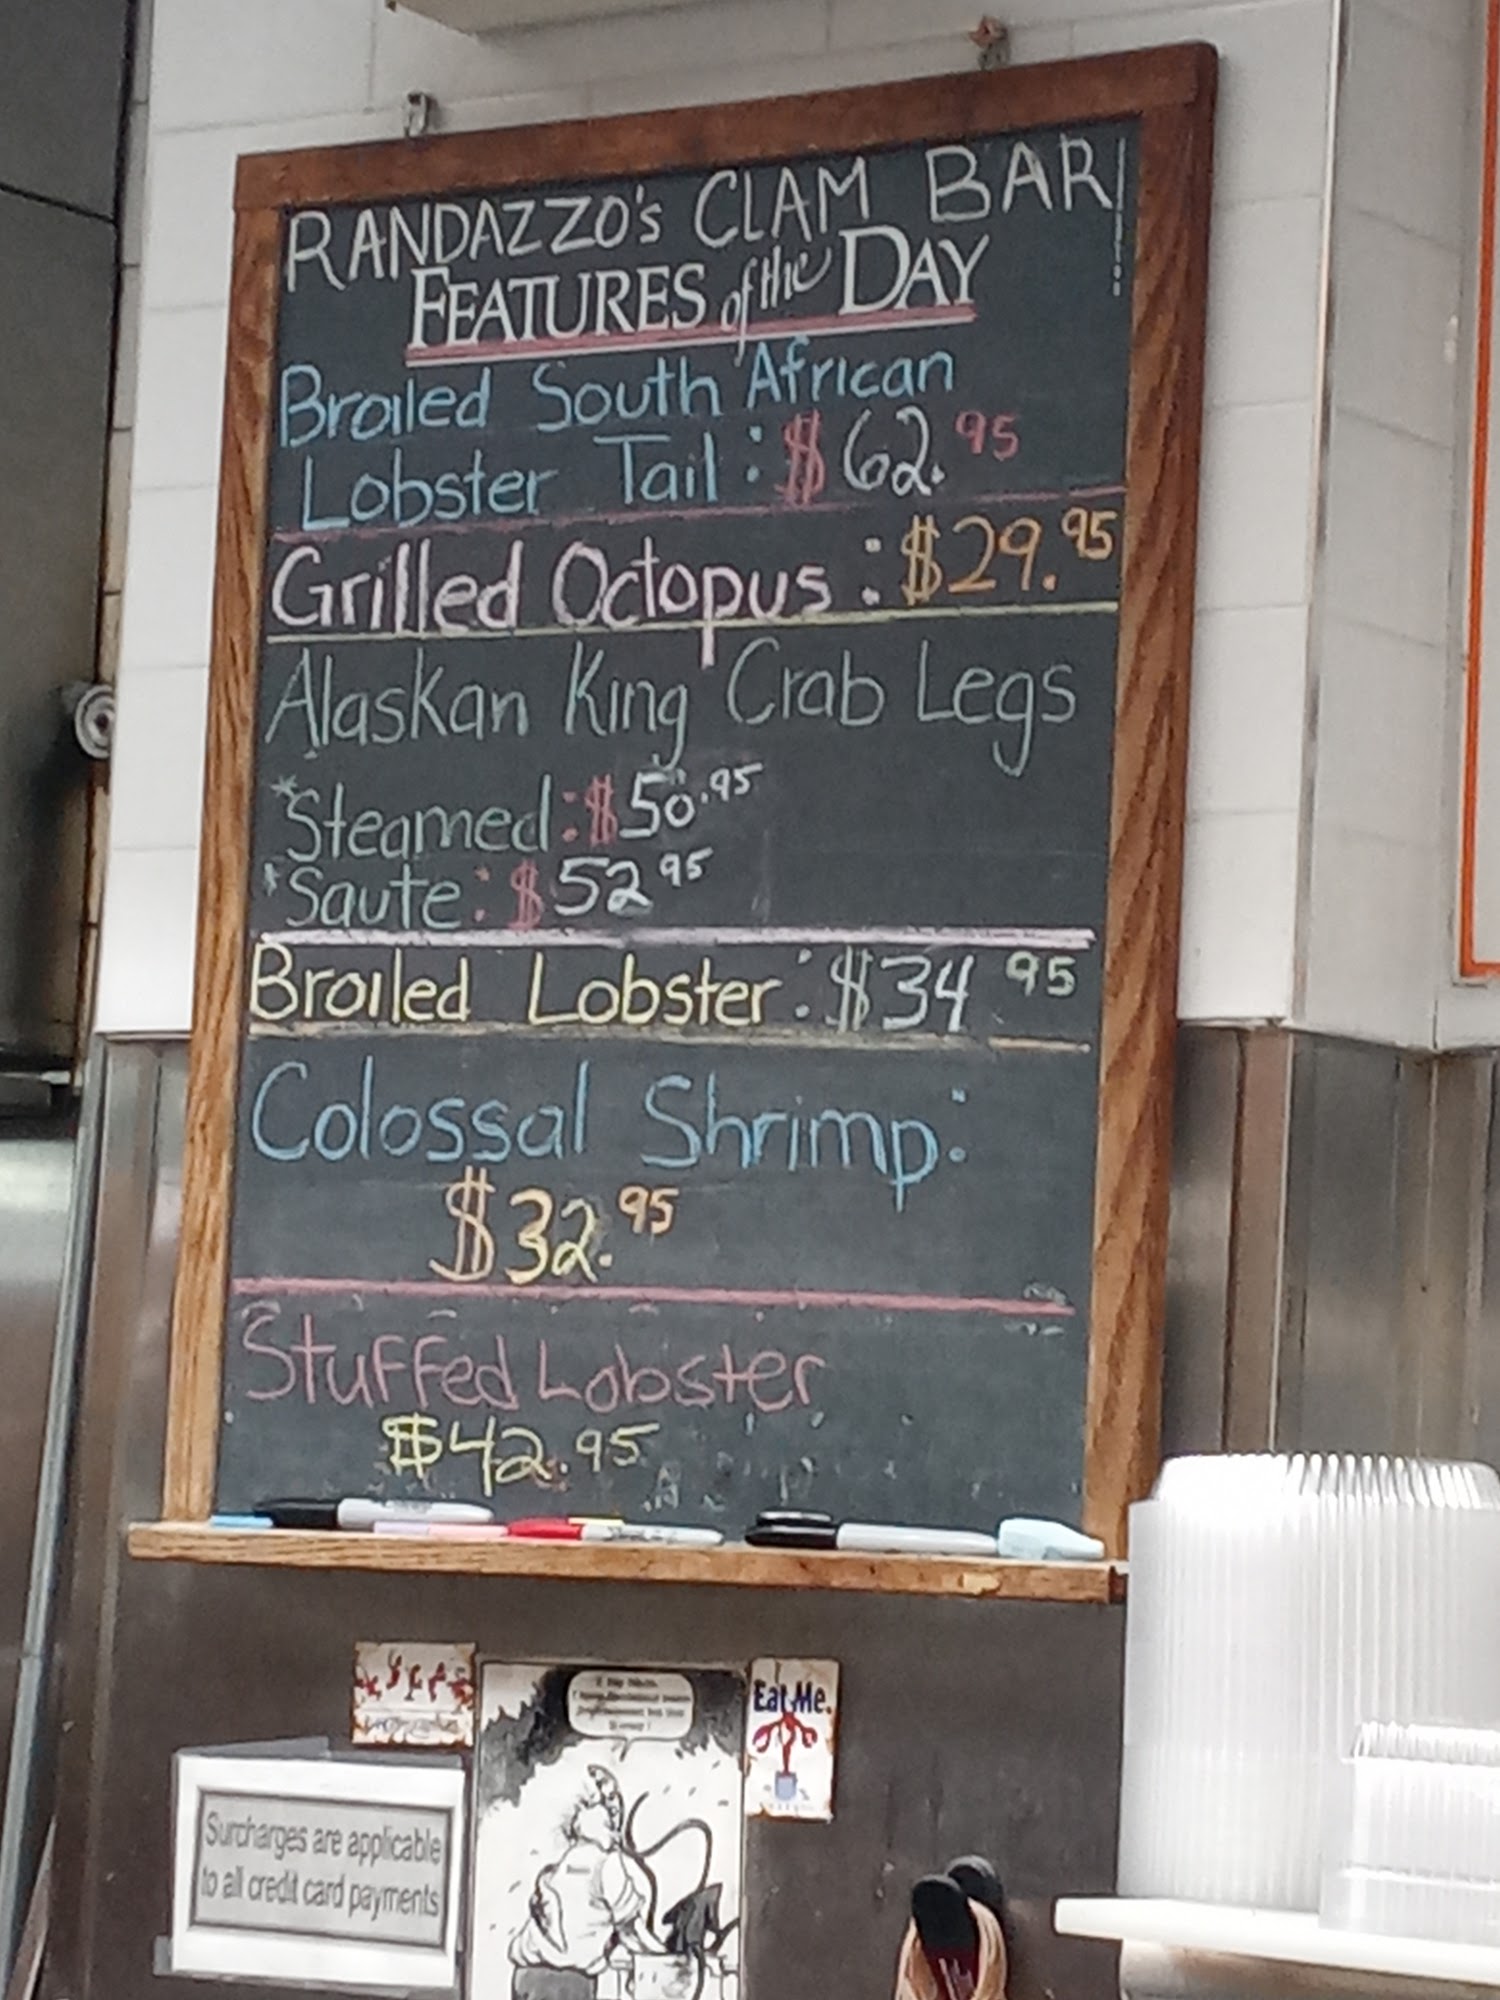 RANDAZZO'S CLAM BAR!
FEATURES of the DAY
Broiled South African
Lobster Tail: $62.95
Grilled Octopus: $29.95
Alaskan King Crab Legs
*Steamed: $50.95
*Saute: $52 95
Broiled Lobster: $34 95
Colossal Shrimp:
$32.95
Stuffed Lobster
$42.95
Eat Me.
Surcharges are applicable
to all credit card payments